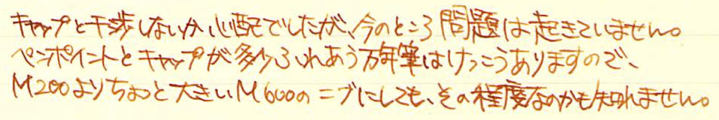 キャップと干渉しないか心配でしたが、今のところ問題は起きていません。
ペンポイントとキャップが多少ふれあう万年筆はけっこうありますので、
M200よりちょっと大きいM600のニブにしても、その程度なのかも知れません。